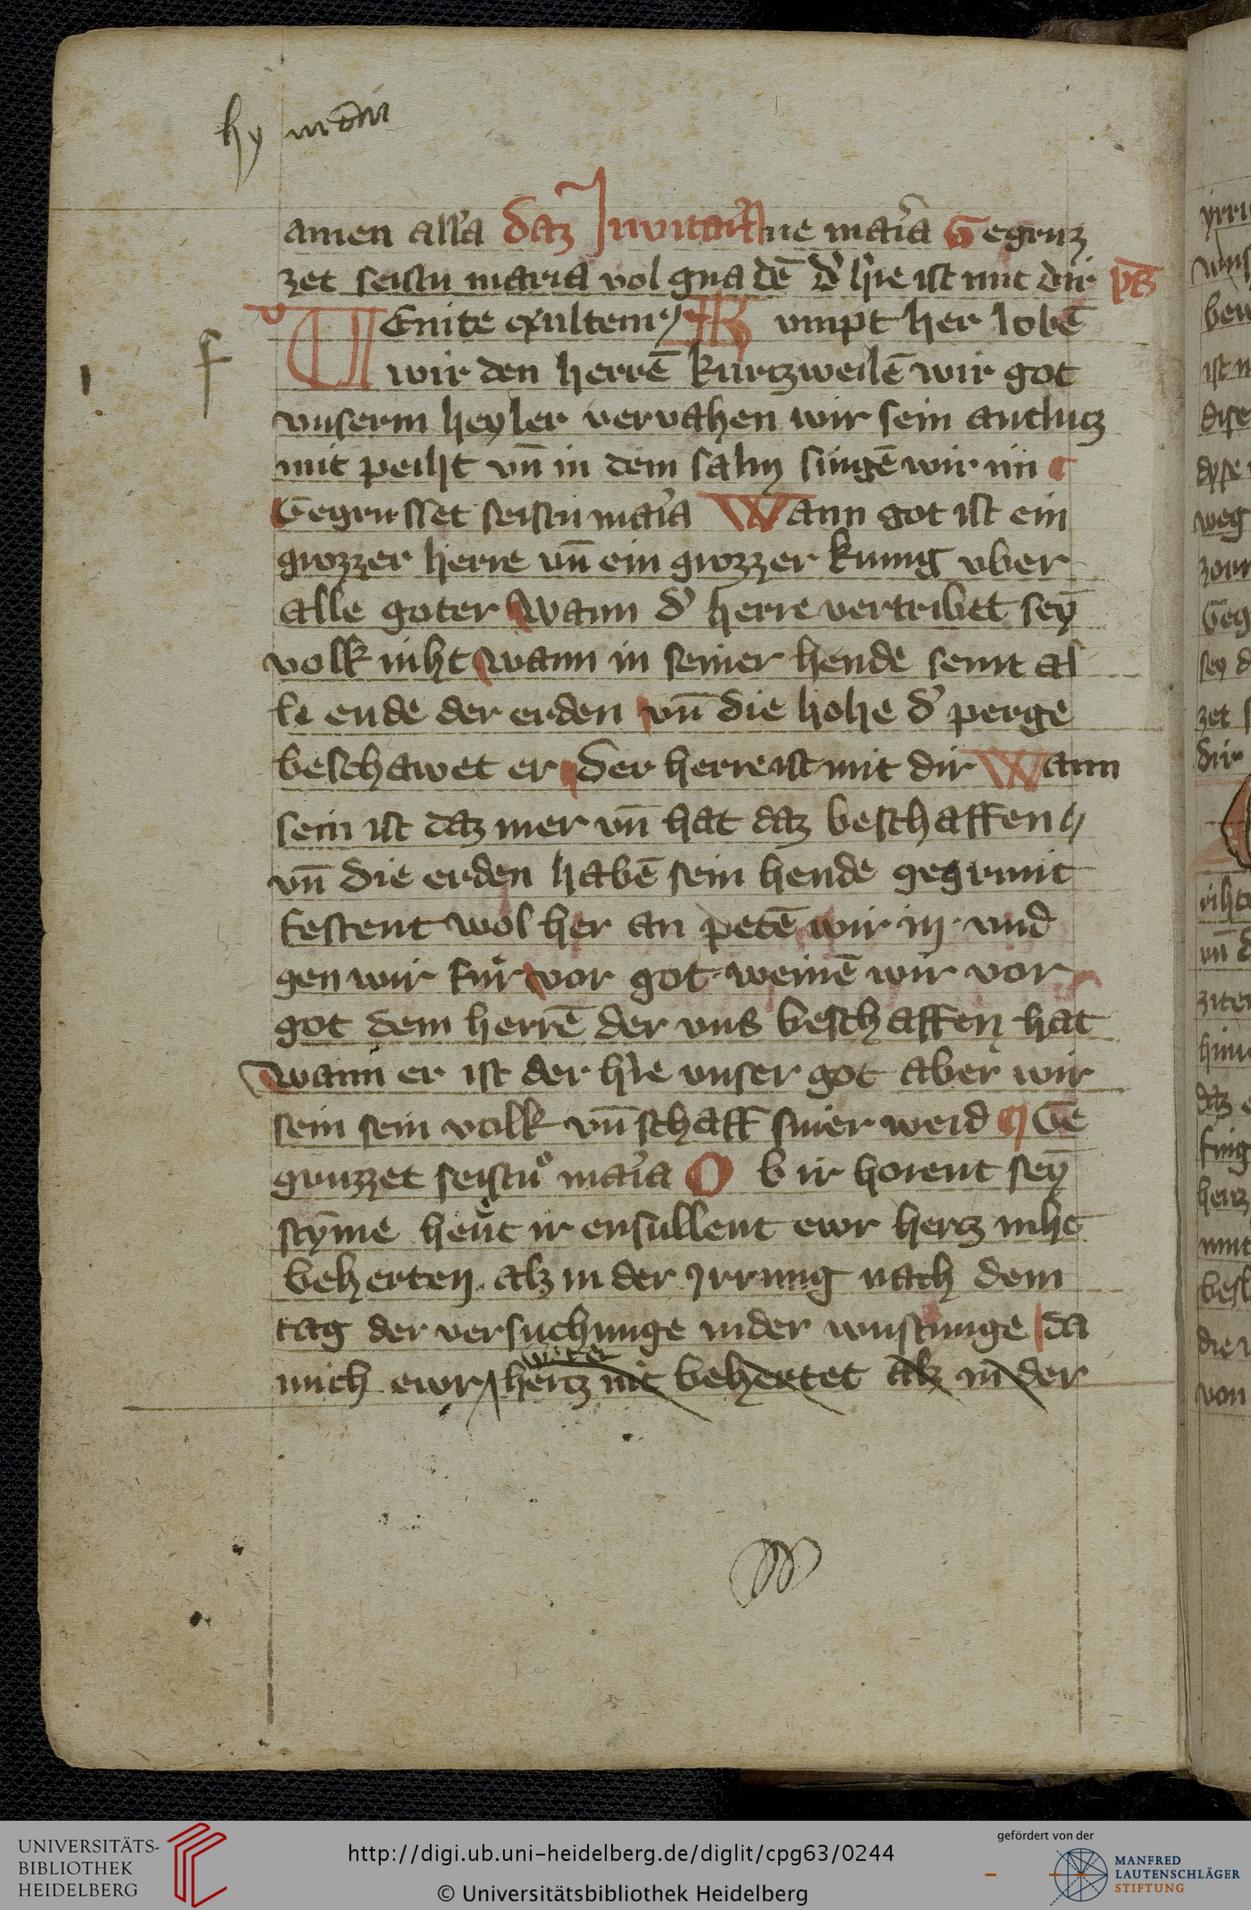 amen alľa daz Invitatꝰ Aue mar̾ia Gegruz
zet seistu maria vol gnadē d̾ h̾re ist mit dir ps
VEnite exultem⸗/ Kvmpt her lobē
wir den herrē kurtzweilē wir got
vnserm heyler vervahen wir sein antlutz
mit peiht vn̄ in dem salm singē wir im
Gegrusset seistu mar̾ia Wann got ist ein
grozzer herre vn̄ ein grozzer kunig vber
alle goter wann d̾ herre vertribet seȳ
volk niht wann in seiner hende seint al
le ende der erden vn̄ die hohe d̾ perge
beschawet er der herre ist mit dir Wann
sein ist daz mer vn̄ hat daz beschaffen //
vn̄ die erden habē sein hende gegrunt
festent wol her an petē wir in vnd
gen wir fur vor got weinē wir vor
got dem herrē der vns beschaffen hat
wann er ist der h̾re vnser got aber wir
sein sein volk vn̄ schaff siner weid Ge
gruzzet seistu mar̾ia Ob ir horent seȳ
sty̅me heut ir ensullent ewr hertz niht
beherten alz in der yrrung nach dem
tag der versuchunge in der wustunge da
mich ewr veter hertz nit behertet alz in der
UNIVERSITÄTS-
BIBLIOTHEK
HEIDELBERG
http://digi.ub.uni-heidelberg.de/diglit/cpg63/0244
© Universitätsbibliothek Heidelberg
gefördert von der
MANFRED
LAUTENSCHLÄGER
STIFTUNG